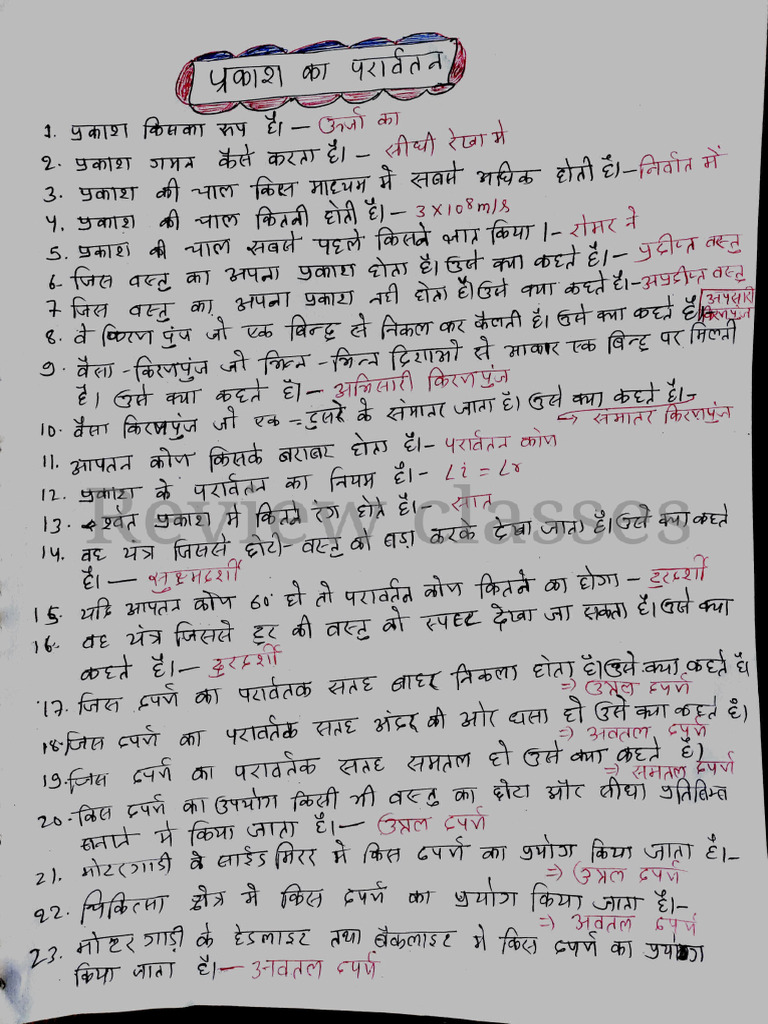 प्रकाश का परार्वतन
1. प्रकाश किसका रूप है। — ऊर्जा का
2. प्रकाश गमन कैसे करता है। — सीधी रेखा मे
3. प्रकाश की चाल किस माध्यम मे सबसे अधिक होती है। — निर्वात में
4. प्रकाश की चाल कितनी होती है। — 3×108m/s
5. प्रकाश की चाल सबसे पहले किसने ज्ञात किया। — रोमर ने
6- जिस वस्तु का अपना प्रकाश होता है। उसे क्या कहते है। — प्रदीप्त वस्तु
7 जिस वस्तु का अपना प्रकाश नही होता है। उसे क्या कहते है। — अप्रदीप्त वस्तु
8. वे किरण पुंज जो एक बिन्दु से निकल कर फैलती है। उसे क्या कहते है। अपसारी किरणपुंज
9. वैसा - किरणपुंज जो भिन्न - भिन्न दिशाओ से आकार एक बिन्दु पर मिलती
है। उसे क्या कहते है। — अभिसारी किरणपुंज
10. वैसा किरणपुंज जो एक = दुसरे के संमातर जाता है। उसे क्या कहते है।
→ संमातर किरणपुंज
11. आपतन कोण किसके बराबर होता है। — परार्वतन कोण
12. प्रकाश के परार्वतन का नियम है। — ∠i = ∠r
13. श्वेत प्रकाश मे कितने रंग होते है। — सात
Review classes
14. वह यंत्र जिससे छोटी - वस्तु को बड़ा करके देखा जाता है। उसे क्या कहते
है। — सुक्ष्मदर्शी
15. यदि आपतन कोण 60° हो तो परार्वतन कोण कितने का होगा — दुरदर्शी
16. वह यंत्र जिससे दूर की वस्तु को स्पष्ट देखा जा सकता है। उसे क्या
कहते है। — दुरदर्शी
17. जिस दर्पण का परार्वतक सतह बाहर निकला होता है। उसे क्या कहते है।
⇒ उत्तल दर्पण
18. जिस दर्पण का परार्वतक सतह अंदर की ओर धसा हो उसे क्या कहते है।
⇒ अवतल दर्पण
19. जिस दर्पण का परार्वतक सतह समतल हो उसे क्या कहते है।
⇒ समतल दर्पण
20- किस दर्पण का उपयोग किसी भी वस्तु का छोटा और सीधा प्रतिबिम्ब
बनाने मे किया जाता है। — उत्तल दर्पण
21. मोटरगाडी के साईड मिरर मे किस दर्पण का प्रयोग किया जाता है। —
⇒ उत्तल दर्पण
22. चिकित्सा क्षेत्र मे किस दर्पण का प्रयोग किया जाता है। —
⇒ अवतल दर्पण
23. मोटर गाड़ी के हेडलाइट तथा बैकलाइट मे किस दर्पण का प्रयोग
किया जाता है। — अवतल दर्पण